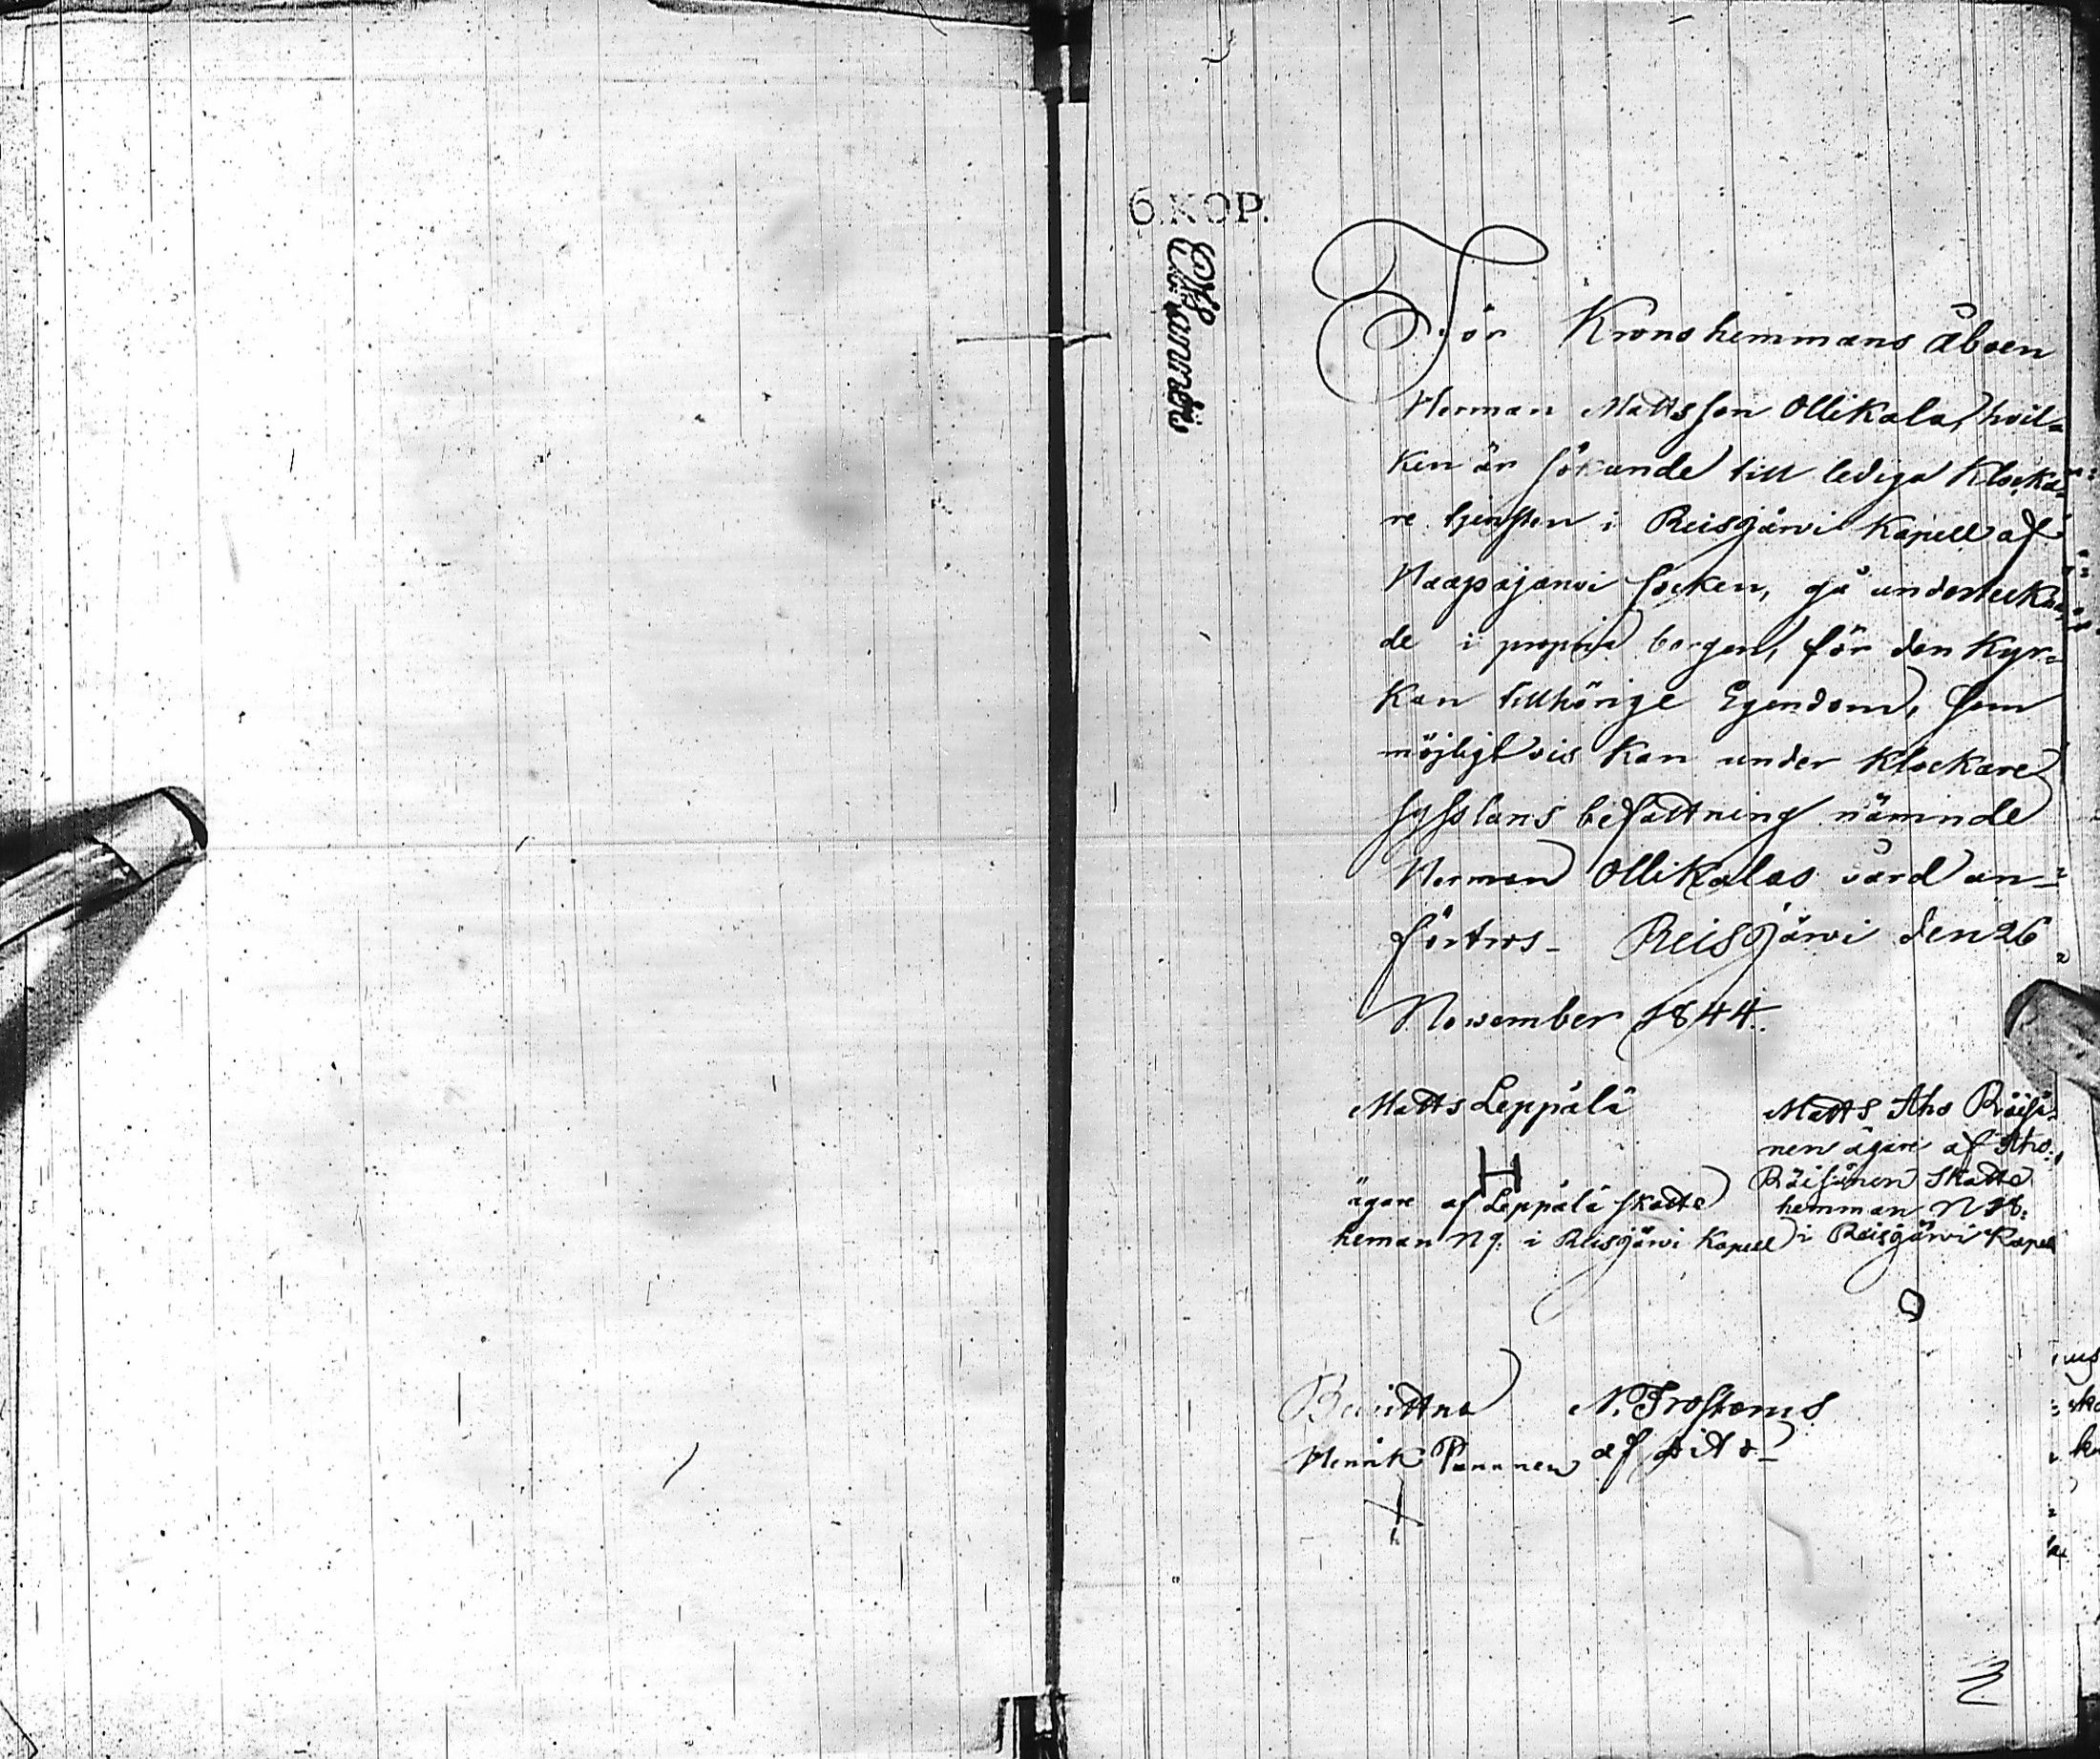 6.KOP.
För Kronohemmans Åboen
Herman Mattsson Ollikala, hvil=
ken är sökande till lediga Klocka=
re tjensten i Reisjärvi Kapell af
Haapajärvi Socken, gå underteckna=
de i proprie borgen, för den Kyr=
kan tillhörige Egendom, som
möjligtvis kan under Klockare
sysslans befattning nämnde
Herman Ollikalas vård an=
förtros_ Reisjärvi den 26
November 1844.
Matts Leppälä
H
ägare af Leppälä skatte
heman N 9. i Reisjärvi Kapell
Matts Aho Räisä=
nen ägare af Aho
Räisänen Skatte
hemman N
i Reisjärvi Kapell
Bevittna
Henrik N. Trostenus
af dito_